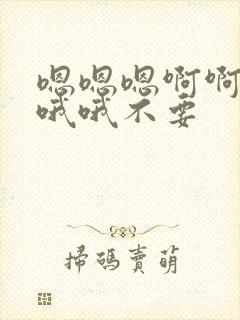 嗯嗯嗯啊啊
哦哦不要
掃碼賣萌